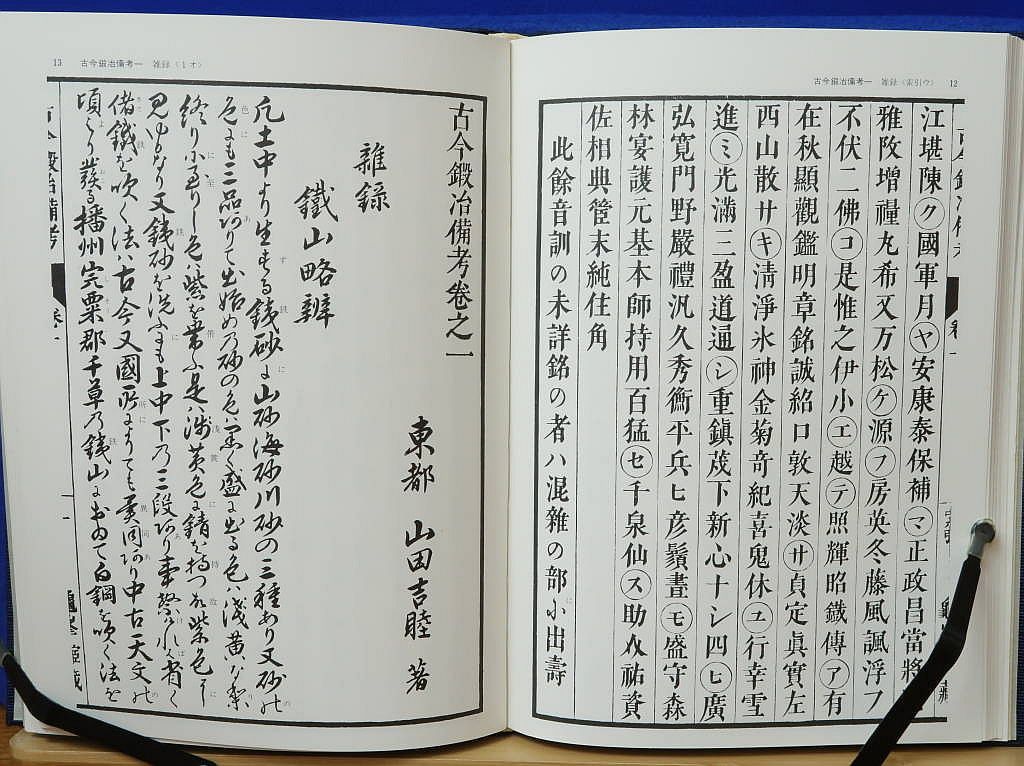 古今鍛冶備考一　雑録〈索引ウ〉　12
江堪陳㋗國軍月㋳安康泰保補㋮正政昌當將
雅政増糧丸希又万松㋘源㋫房英冬藤風諷浮フ
不伏二佛㋙是惟之伊小㋓越㋢照輝昭鐵傳㋐有
在秋顯觀鑑明章銘誠紹口敦天淡㋚貞定眞實左
西山散廾㋖淸淨氷神金菊奇紀喜鬼休㋴行幸雪
進㋯光滿三盈道通㋛重鎭茂下新心十シ四㋪廣
弘寛門野嚴禮汎久秀衡平兵ヒ彦鬚晝㋲盛守森
林宴護元基本師持用百猛㋝千泉仙㋜助祐資
佐相典管末純住角
此餘音訓の未詳銘の者ハ混雜の部に出壽
13　古今鍛冶備考一　雑録〈1オ〉
古今鍛冶備考卷之一
東都　山田吉睦　著
雜録
鐵山略辨
凡土中より生する銕砂に山砂海砂川砂の三種あり又砂の
色にも三品ありて出始めの砂の色ハ黒く盛に出る色ハ浅黄になり
終りに至りし色ハ紫を帯ふ是ハ浅黄色に錆を持つ故紫色に
見ゆるなり又銕砂を洗ふにも上中下の三段あり
偖鐵を吹く法ハ古今又國所によりても異同あり中古天文の
頃より發る播州宍粟郡千草の銕山に於て白鋼を吹く法を